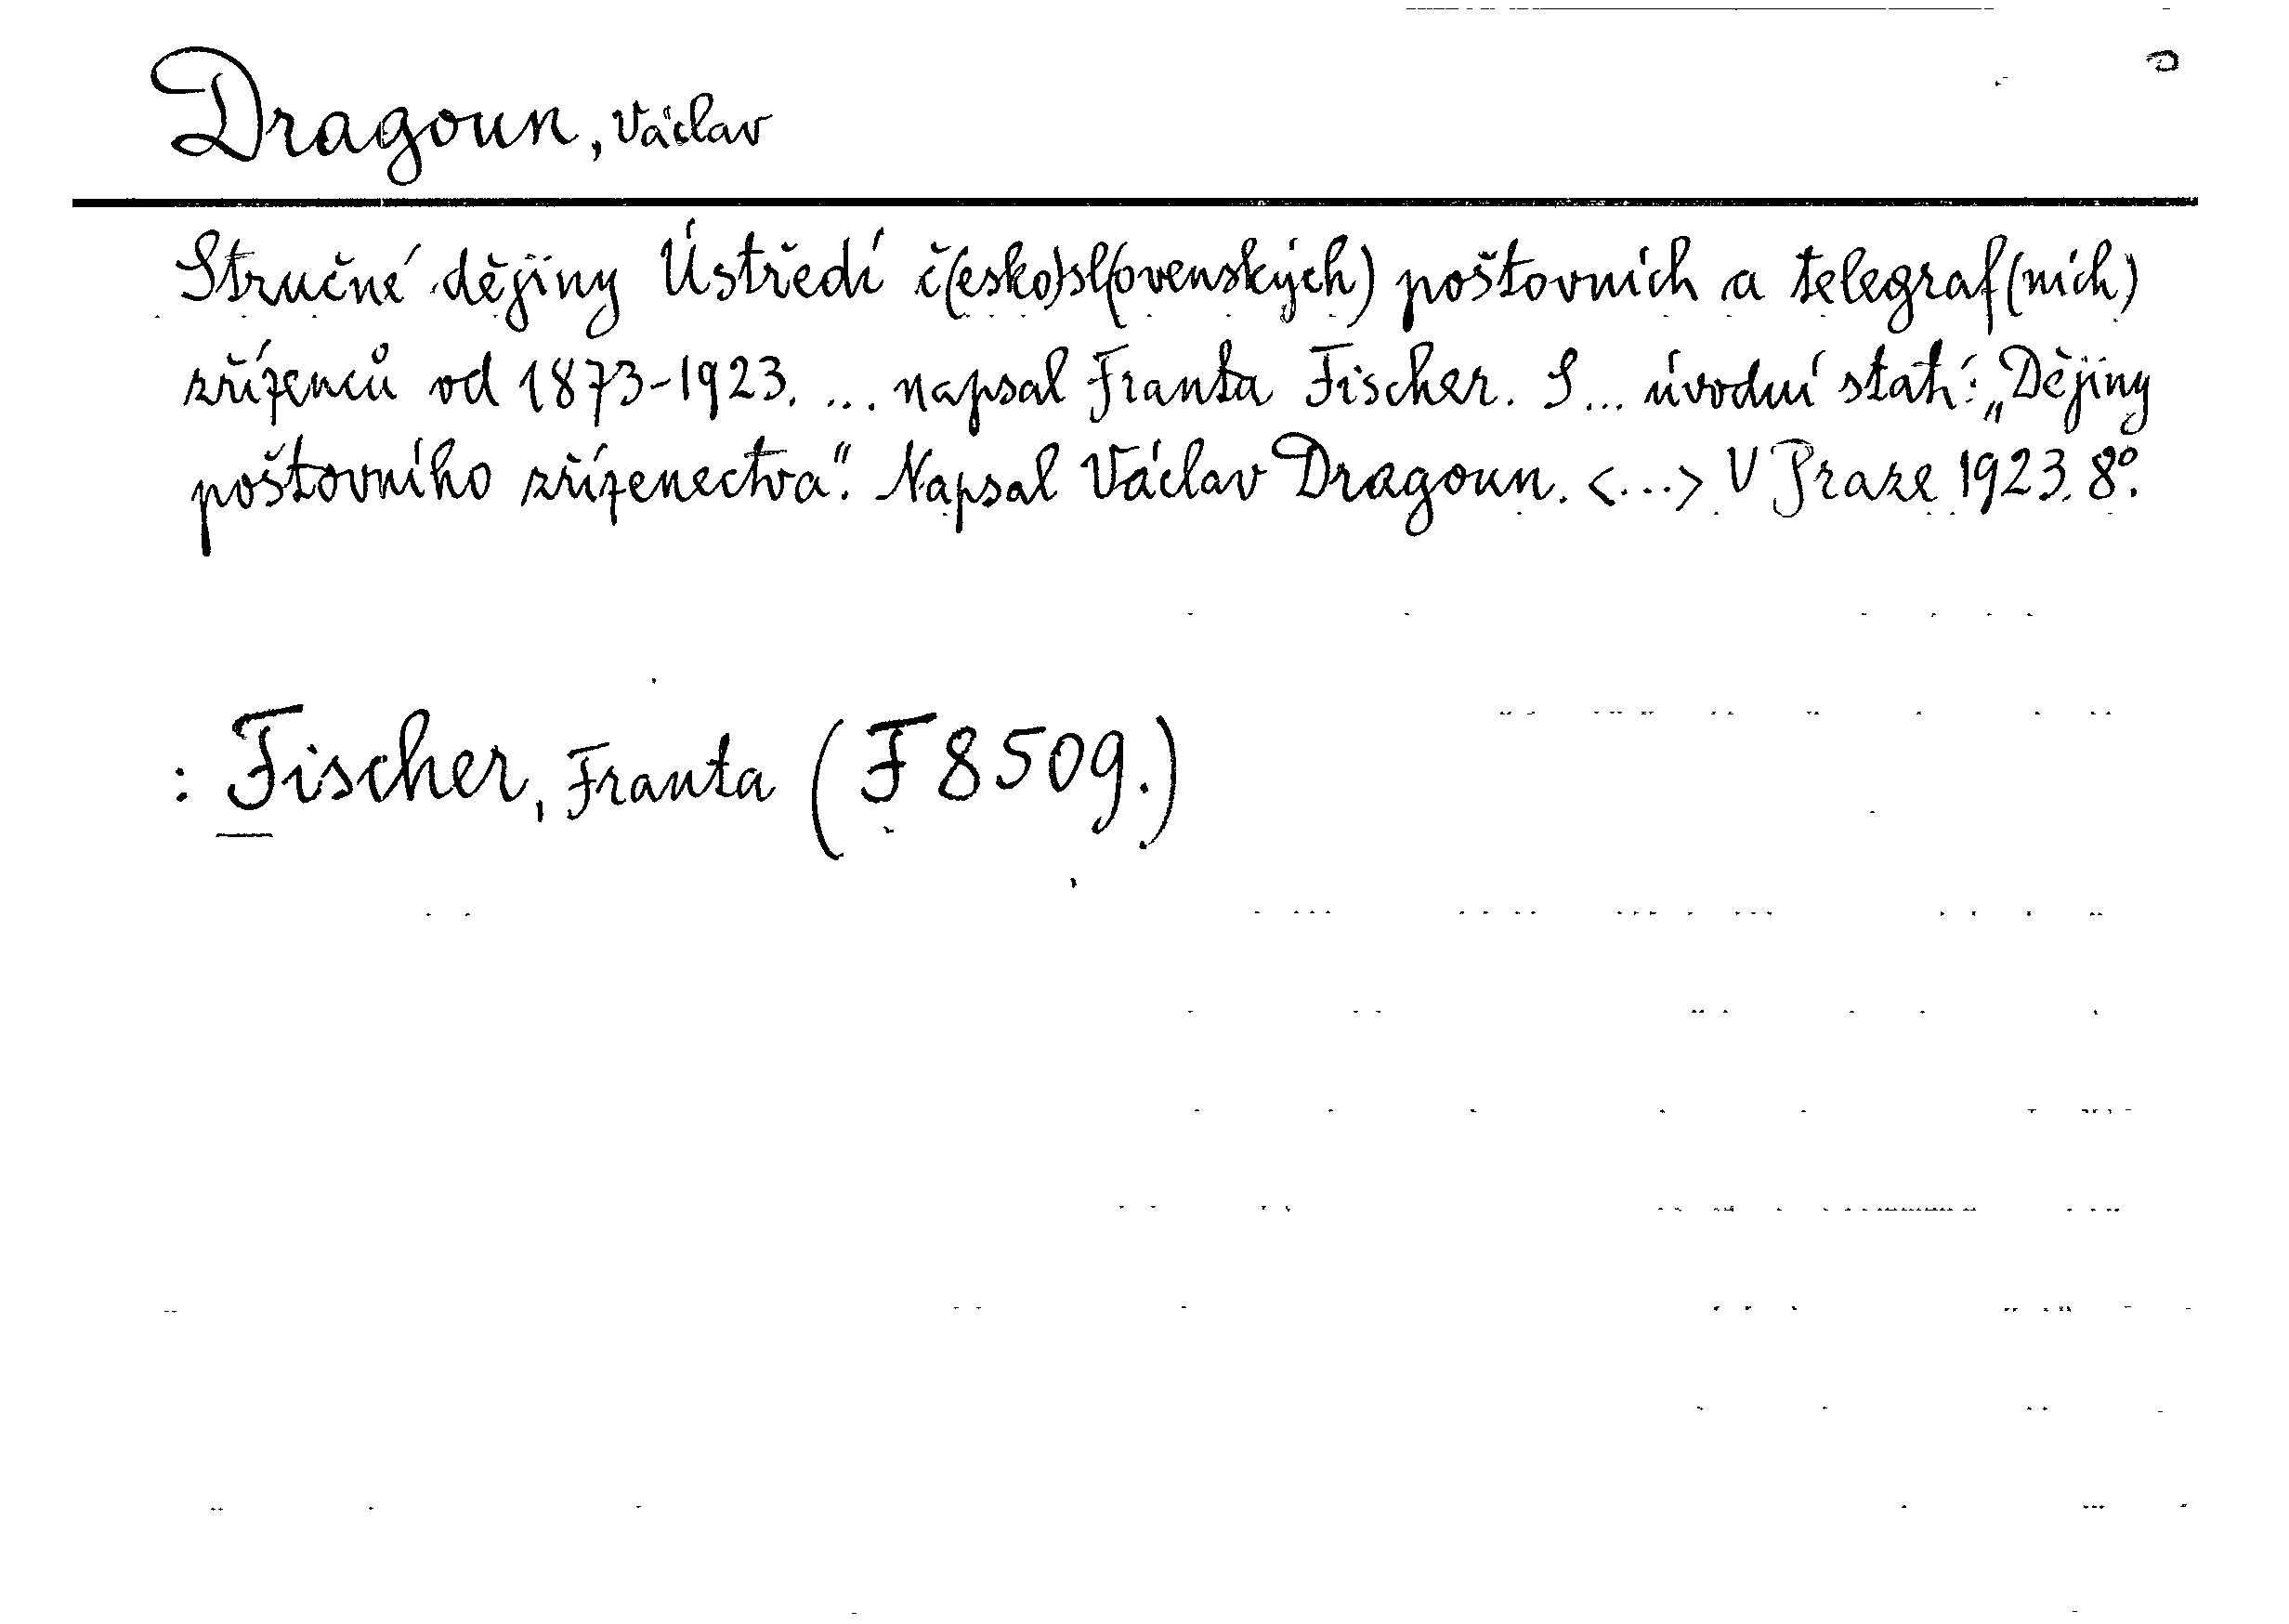 Dragoun, Václav
Stručné dějiny Ústředí č(esko)sl(ovenských) poštovních a telegraf(ních)
zřízenců od 1873-1923. ... napsal Franta Fischer. S ... úvodní statí: „Dějiny
poštovního zřízenectva“. Napsal Václav Dragoun. <...> V Praze 1923. 8°.
: Fischer, Franta (F 8509.)